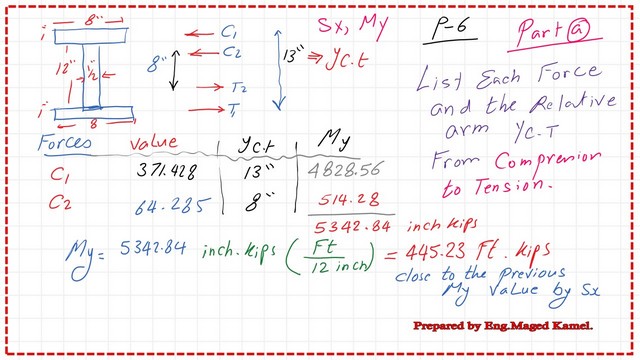 P-6 Part (a)
Sx, My
13" ⇒ yC.t
8"
1"
C1
C2
12"
1/2"
8"
T2
T1
1"
8
List Each Force
and the Relative
arm yC-T
From Compression
to Tension.
Forces value yC.t My
C1 371.428 13" 4828.56
C2 64.285 8" 514.28
5342.84 inch kips
My = 5342.84 inch.kips (Ft/12 inch) = 445.23 Ft. kips
close to the previous
My value by Sx
Prepared by Eng.Maged Kamel.